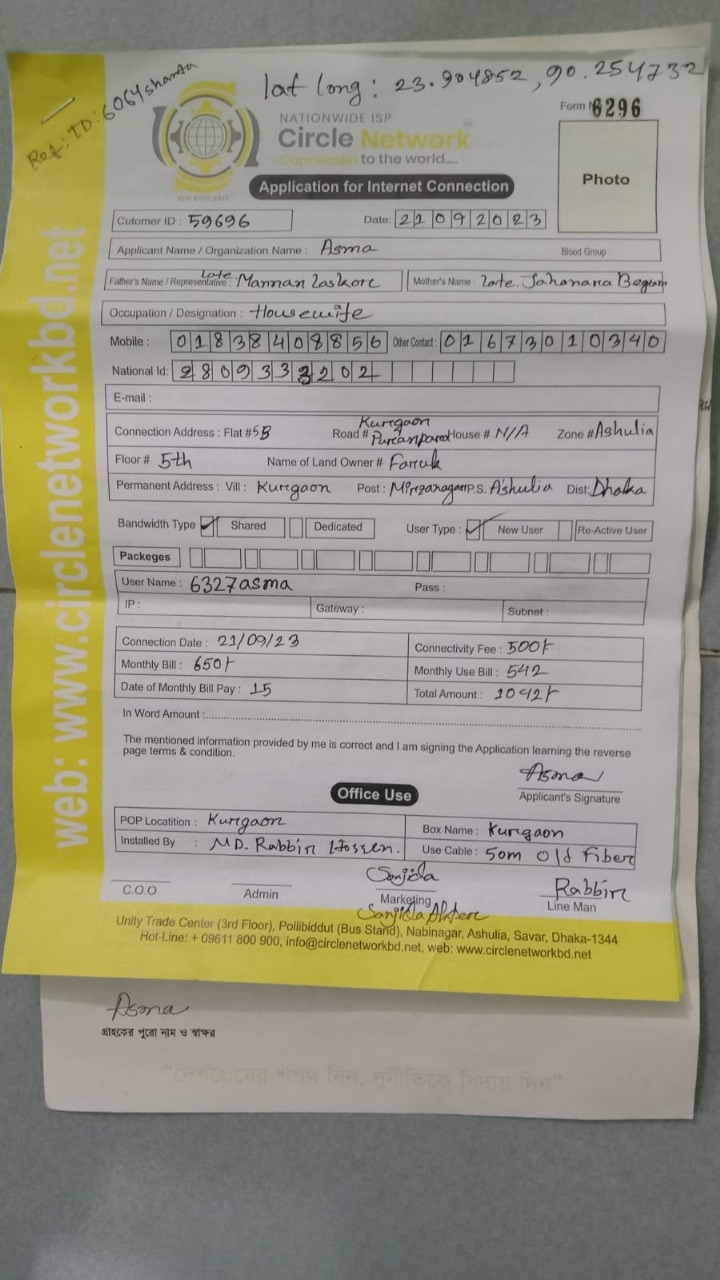 lat long : 23.904852, 90.254732
Ref: ID: 6064shanta
NATIONWIDE ISP
Circle Network
Connected to the world....
Form 6296
Photo
Application for Internet Connection
Cutomer ID : 59696 Date: 21092023
Applicant Name / Organization Name : Asma Blood Group :
Father's Name / Representative : Late. Mannan Laskore Mother's Name : Late. Jahanara Begum
Occupation / Designation : Housewife
Mobile : 01838408856 Other Contact : 01673010340
National Id: 2809333202
E-mail :
Connection Address : Flat # 5B Road # Kurgaon Puranpara House # N/A Zone # Ashulia
Floor # 5th Name of Land Owner # Faruk
Permanent Address : Vill : Kurgaon Post : Mirzanagar P.S. Ashulia Dist: Dhaka
Bandwidth Type : Shared Dedicated User Type : New User Re-Active User
Packeges
User Name : 6327asma Pass :
IP : Gateway : Subnet :
Connection Date : 21/09/23 Connectivity Fee : 500/-
Monthly Bill : 650/- Monthly Use Bill : 542
Date of Monthly Bill Pay : 15 Total Amount : 1042/-
In Word Amount :
The mentioned information provided by me is correct and I am signing the Application learning the reverse
page terms & condition.
Asma
Applicant's Signature
Office Use
POP Locatition : Kurgaon Box Name : Kurgaon
Installed By : MD. Rabbir Hossen. Use Cable : 50m Old Fiber
Sanjida Rabbir
C.O.O Admin Marketing Line Man
Sanjida Akter
Unity Trade Center (3rd Floor), Pollibiddut (Bus Stand), Nabinagar, Ashulia, Savar, Dhaka-1344
Hot-Line: + 09611 800 900, info@circlenetworkbd.net, web: www.circlenetworkbd.net
web: www.circlenetworkbd.net
Asma
গ্রাহকের পুরো নাম ও স্বাক্ষর
"দেশপ্রেমের শপথ নিন, দুর্নীতিকে বিদায় দিন"